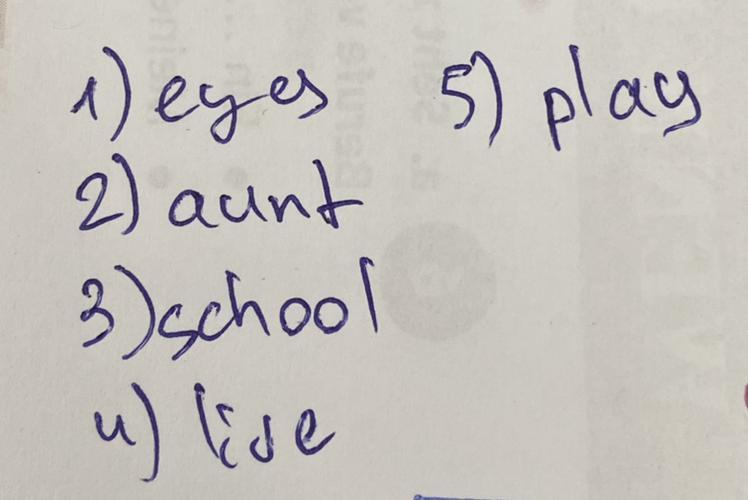 1) eyes
2) aunt
3) school
4) live
5) play